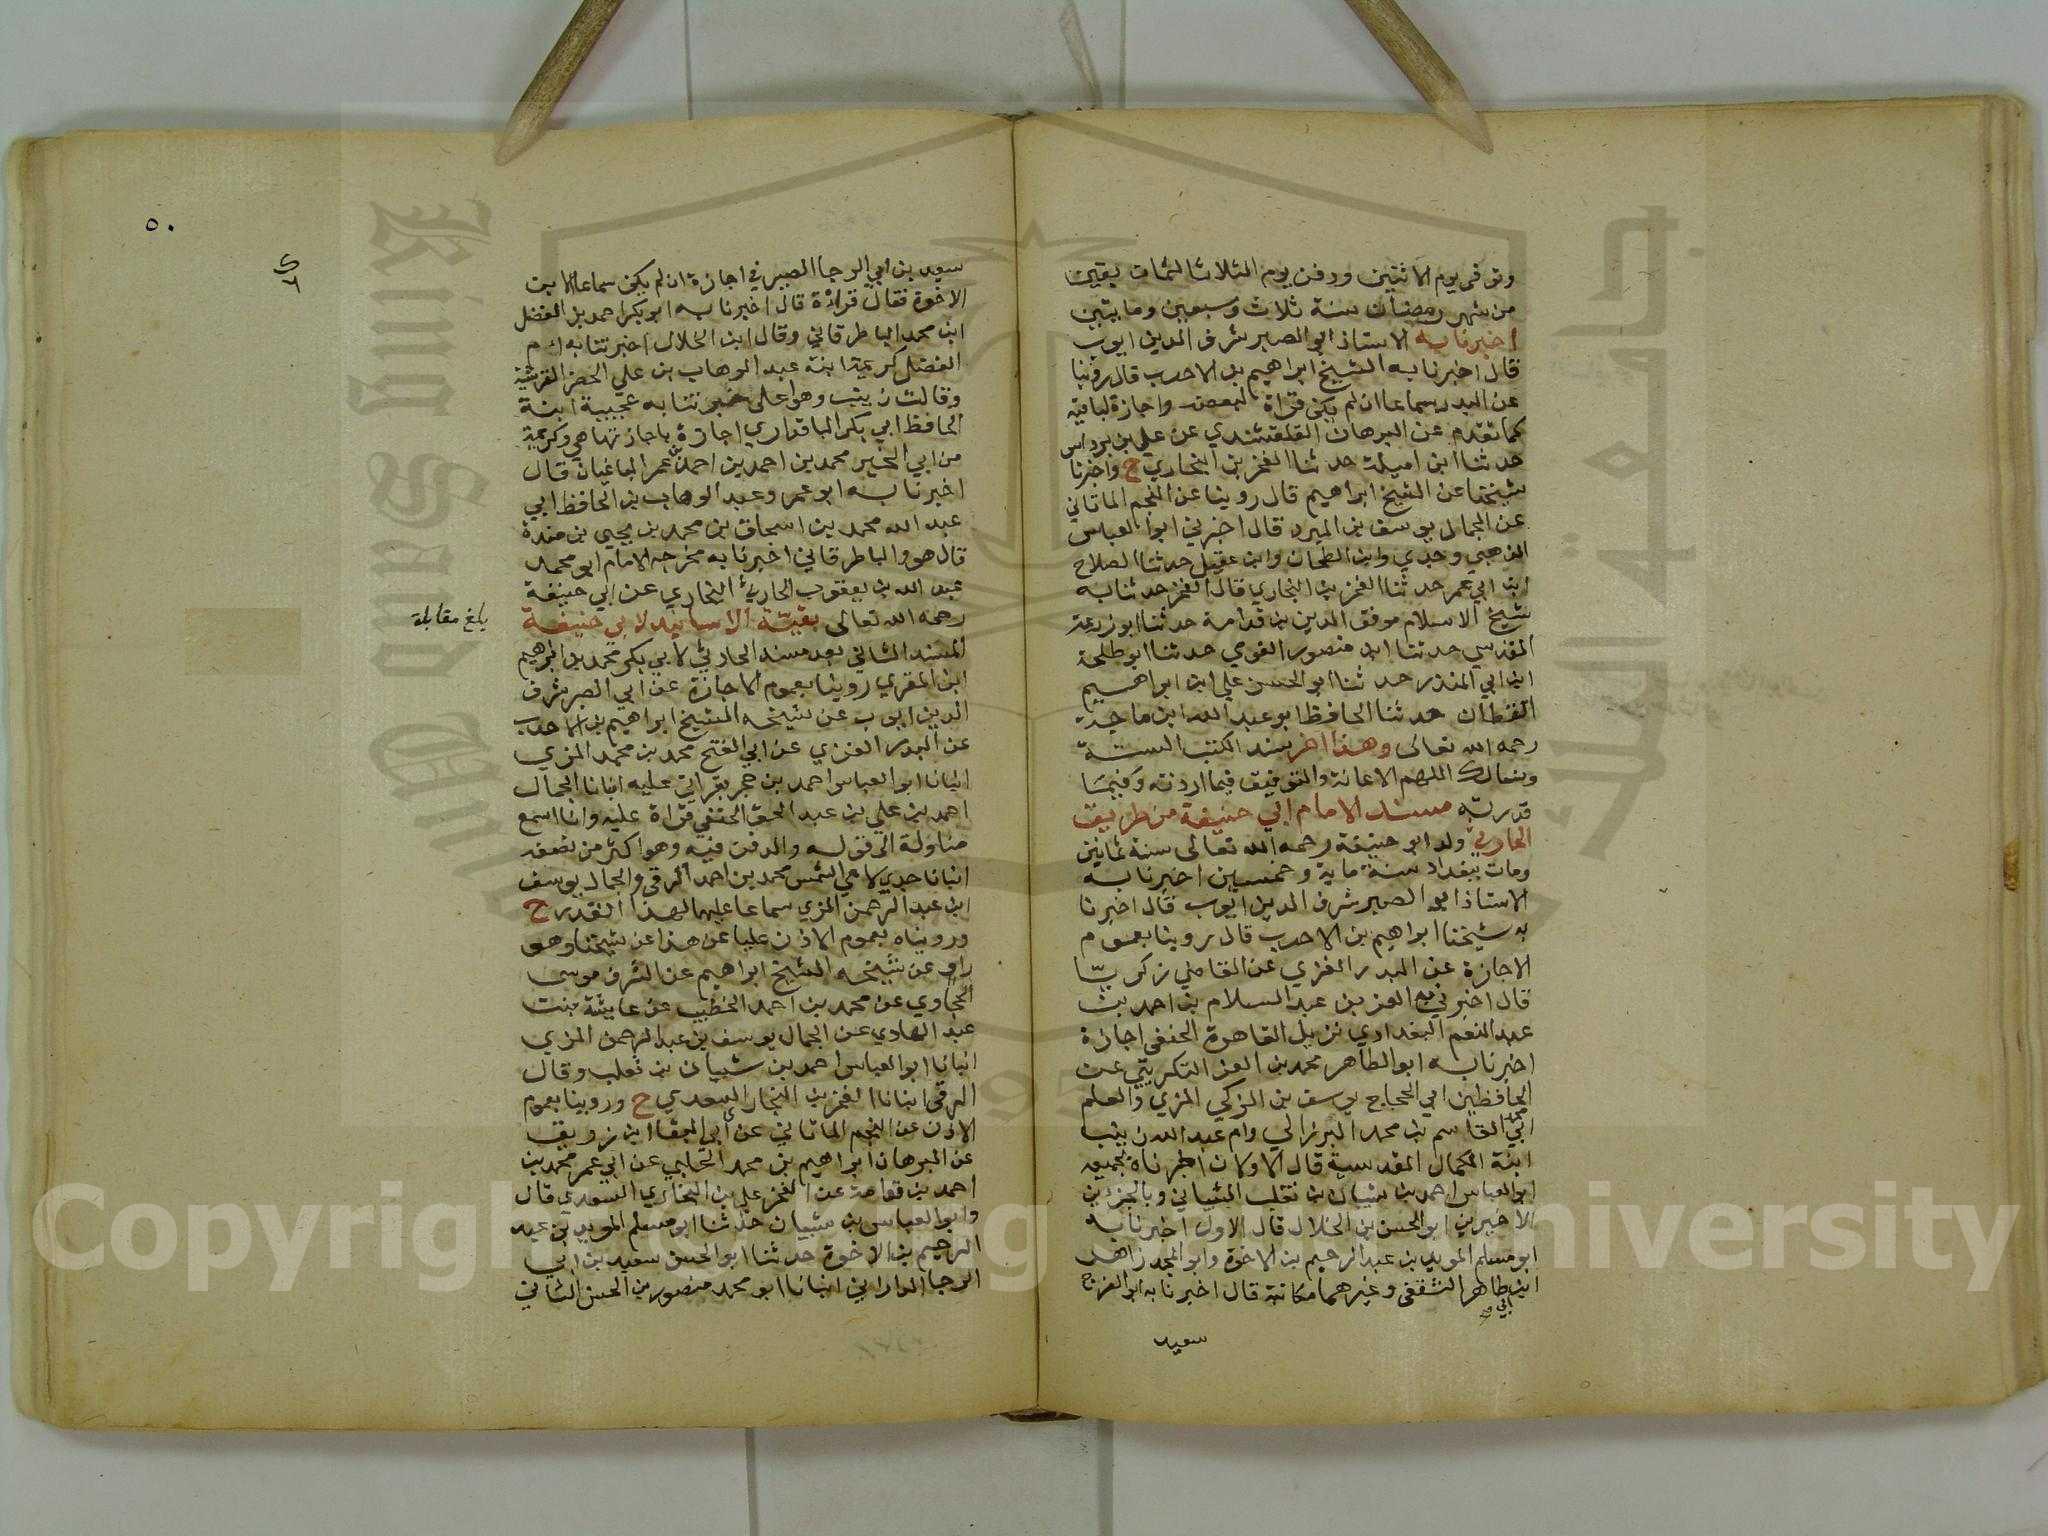 وتوفى يوم الاثنين ودفن يوم الثلاثا لثمان بقين
من شهر رمضان سنة ثلاث وسبعين ومايتين
اخبرنا به الاستاذ ابو الصبر شرف الدين ايوب
قال اخبرنا به الشيخ ابراهيم بن الاحدب قال روينا
عن البدر سماعا ان لم يكن قراة لبعضه واجازة لباقيه
كما تقدم عن البرهان القلقشندي عن علي بن برداس
حدثنا ابن اميلة حدثنا الفخر بن البخاري ح واخبرنا
شيخنا عن الشيخ ابراهيم قال روينا عن النجم الماتاني
عن الجمال يوسف بن المبرد قال اخبرني ابو العباس
الذهبي وجدي وابن الطحان وابن عقيل حدثنا الصلاح
ابن ابي عمر حدثنا الفخر بن البخاري قال الفخر حدثنا به
شيخ الاسلام موفق الدين بن قدامة حدثنا ابو زرعة
المقدسي حدثنا ابو منصور القومي حدثنا ابو طلحة
ابن ابي المنذر حدثنا ابو الحسن علي ابن ابراهيم
القطان حدثنا الحافظ ابو عبد الله ابن ماجة
رحمه الله تعالى وهذا اخر سند الكتب الستة
ونسالك اللهم الاعانة والتوفيق فيما اردته وفيما
قدرته مسند الامام ابي حنيفة من طريق
الحارثي ولد ابو حنيفة رحمه الله تعالى سنة ثمانين
ومات ببغداد سنة ماية وخمسين اخبرنا به
الاستاذ ابو الصبر شرف الدين ايوب قال اخبرنا
به شيخنا ابراهيم بن الاحدب قال روينا بعموم
الاجازة عن البدر الغزي عن القاضي زكريا
قال اخبرني به العز بن عبد السلام بن احمد بن
عبد المنعم البغدادي نزيل القاهرة الحنفي اجازة
اخبرنا به ابو الطاهر محمد بن العز التكريتي عن
الحافظين ابي الحجاج يوسف بن الزكي المزي والعلم
ابي محمد القاسم بن محمد البرزالي وام عبد الله زينب
ابنة الكمال المقدسية قال الاولان اخبرناه بجميعه
ابو العباس احمد بن شيبان بن تغلب الشيباني وبالجزئين
الاخيرين ابو الحسن بن الخلال قال الاول اخبرنا به
ابو مسلم المويد بن عبد الرحيم بن الاخوة وابو المجد زاهر
ابن ابي طاهر الثقفي وغيرهما مكاتبة قال اخبرنا به ابو الفرج
سعيد
٥٠
سعيد بن ابي الرجا الصيرفي اجازة ان لم يكن سماعا الا ابن
الاخوة فقال قراءة قال اخبرنا به ابو بكر احمد بن الفضل
ابن محمد الباطرقاني وقال ابن الخلال اخبرتنا به ام
الفضل كريمة ابنة عبد الوهاب بن علي الخضر القرشية
وقالت زينب وهو اعلى خبرتنا به عجيبة ابنة
الحافظ ابي بكر الباقداري اجازة باجازتها هي وكريمة
من ابي الخير محمد بن احمد بن احمد بن عمر الباغبان قال
اخبرنا به ابو عمر وعبد الوهاب بن الحافظ ابي
عبد الله محمد بن اسحاق بن محمد بن يحيى بن مندة
قال هو والباطرقاني اخبرنا به مخرجه الامام ابو محمد
عبد الله بن يعقوب الحارثي البخاري عن ابي حنيفة
رحمه الله تعالى بقية الاسانيد لابي حنيفة
بلغ مقابلة
المسند الثاني بعد مسند الحارثي لابي بكر محمد بن ابراهيم
ابن المقري روينا بعموم الاجازة عن ابي الصبر شرف
الدين ايوب عن شيخه الشيخ ابراهيم بن الاحدب
عن البدر الغزي عن ابي الفتح محمد بن محمد المزي
انبانا ابو العباس احمد بن حجر بقراتي عليه انبانا الجمال
احمد بن علي بن عبد الحق الحنفي قراة عليه وانا اسمع
مناولة الى قوله والدفن فيه وهو اكثر من نصفه
انبانا جدي لامي الشمس محمد بن احمد الرقي والجمال يوسف
ابن عبد الرحمن المزي سماعا عليهما لهذا القدر ح
ورويناه بعموم الاذن عليا عن هذا عن شيخنا وهو
راو عن شيخه الشيخ ابراهيم عن الشرف موسى
الحجاوي عن محمد بن احمد الخطيب عن عايشة بنت
عبد الهادي عن الجمال يوسف بن عبد الرحمن المزي
انبانا ابو العباس احمد بن شيبان بن تغلب وقال
الرقي انبانا الفخر بن البخار السعدي ح وروينا بعموم
الاذن عن النجم الماتاني عن ابي البقا ابن زريق
عن البرهان ابراهيم بن محمد الحلبي عن ابي عمر محمد بن
احمد بن قدامة عن الفخر علي بن البخاري السعدي قال
وابو العباس بن شيبان حدثنا ابو مسلم المويد بن عبد
الرحيم بن الاخوة حدثنا ابو الحسن سعيد بن ابي
الرجا الداراني انبانا ابو محمد منصور بن الحسن الثاني
Copyright © King Saud University
King Saud University
جامعة الملك سعود
1957